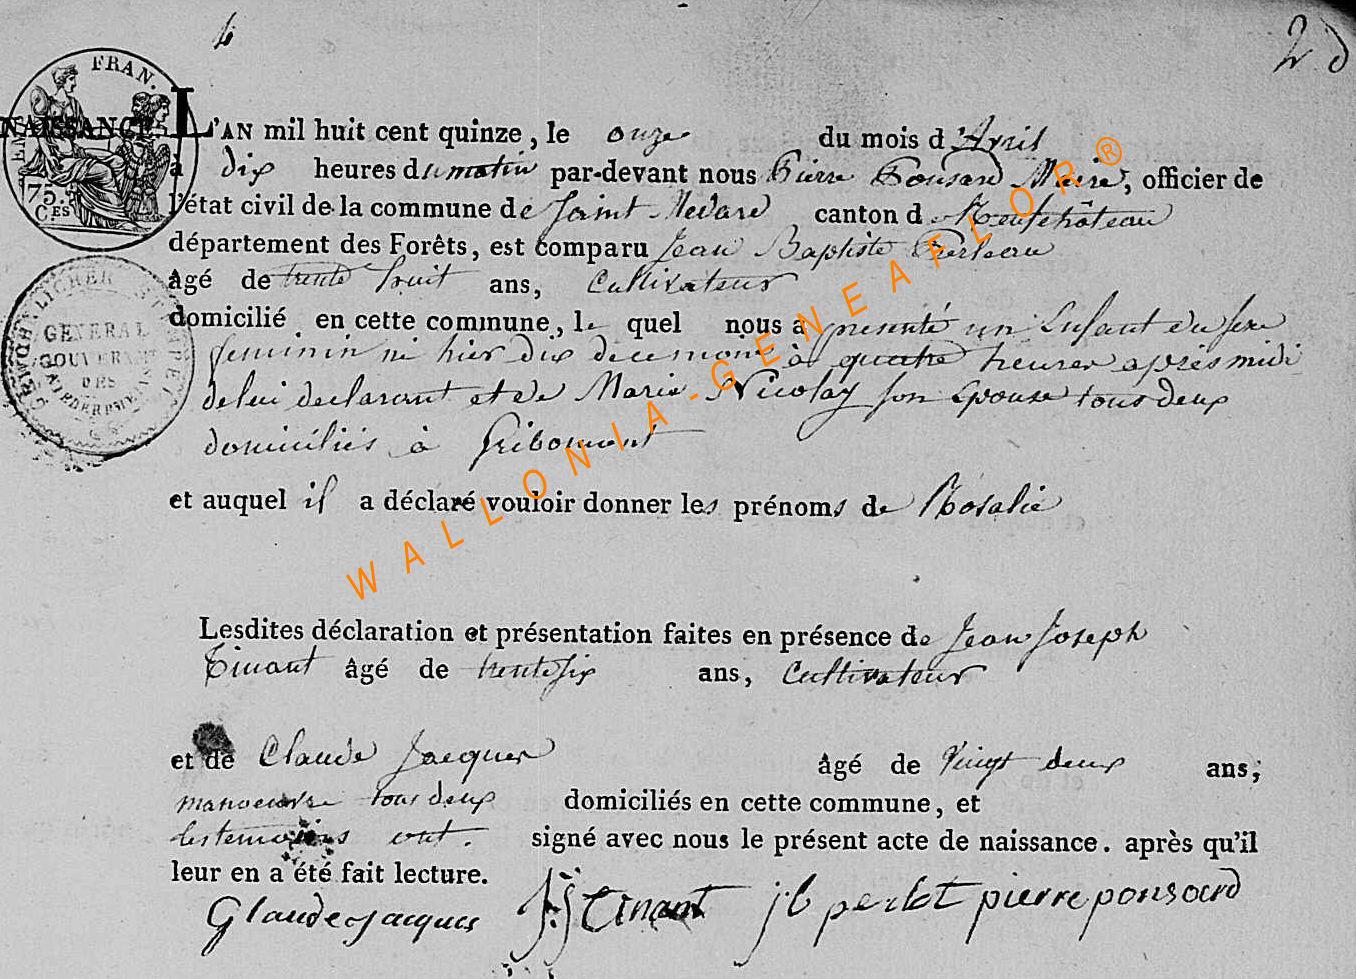 2d
FRAN.
EMP
75.
CES
NAISSANCE. L'AN mil huit cent quinze, le onze du mois d'Avril
à dix heures du matin par-devant nous Pierre Ponsard Maire, officier de
l'état civil de la commune de Saint-Medard canton de Neufchâteau
département des Forêts, est comparu Jean Baptiste
âgé de trente huit ans, Cultivateur
domicilié en cette commune, le quel nous a presenté un Enfant du sexe
feminin né hier dix de ce mois à quatre heures apres midi
de lui declarant et de Marie Nicolay son epouse tous deux
domiciliés à Gribomont
et auquel il a déclaré vouloir donner les prénoms de Rosalie
Lesdites déclaration et présentation faites en présence de Jean Joseph
Tinant âgé de trente six ans, Cultivateur
et de Claude Jacques âgé de vingt deux ans,
manoeuvre tous deux domiciliés en cette commune, et
les temoins ont signé avec nous le présent acte de naissance. après qu'il
leur en a été fait lecture.
Glaude Jacques J:J Tinant jb perlot pierre ponsard
GENERAL
GOUVERNMT
DES
WALLONIA-GENEAFLOR®